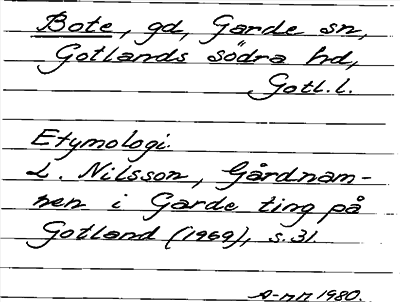 Bote, gd, Garde sn,
Gotlands södra hd,
Gotl. l.
Etymologi.
L. Nilsson, Gårdnam-
nen i Garde ting på
Gotland (1969), s. 31.
1980.